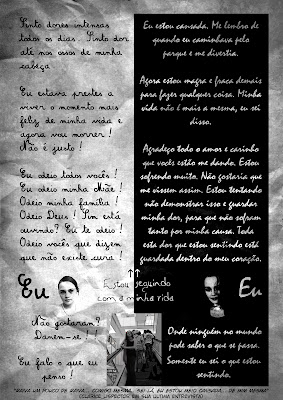 Sinto dores intensas
todos os dias. Sinto dor
até nos ossos de minha
cabeça.
Eu estava prestes a
viver o momento mais
feliz de minha vida e
agora vou morrer!
Não é justo!
Eu odeio todos vocês!
Eu odeio minha Mãe!
Odeio minha família!
Odeio Deus! Sim está
ouvindo? Eu te odeio!
Odeio vocês que dizem
que não existe cura!
Eu
Não gostaram?
Danem-se!
Eu falo o que eu
penso!
Eu estou cansada. Me lembro de
quando eu caminhava pelo
parque e me divertia.
Agora estou magra e fraca demais
para fazer qualquer coisa. Minha
vida não é mais a mesma, eu sei
disso.
Agradeço todo o amor e carinho
que vocês estão me dando. Estou
sofrendo muito. Não gostaria que
me vissem assim. Estou tentando
não demonstrar isso e guardar
minha dor, para que não sofram
tanto por minha causa. Toda
esta dor que estou sentindo está
guardada dentro do meu coração.
Eu
Onde ninguém no mundo
pode saber o que se passa.
Somente eu sei o que estou
sentindo.
Estou seguindo
com a minha vida
"RAIVA UM POUCO DE RAIVA... COMIGO MESMA. SEI LÁ, EU ESTOU MEIO CANSADA... DE MIM MESMA"
(CLARICE LISPECTOR EM SUA ÚLTIMA ENTREVISTA)